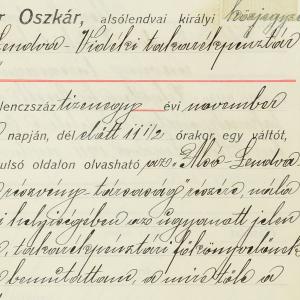 r Oszkár, alsólendvai királyi közjegyz
Lendva-Vidéki takarékpénztár
lenczszáz tizenegy évi november
napján, dél előtt 11 1/2 órakor, egy váltót,
ulsó oldalon olvasható az „Alsó-Lendva
részvény-társaság" részére, nála
i helyiségében az ugyanott jelen
, takarékpénztári főkönyvelőnek
bemutattam, a miről a